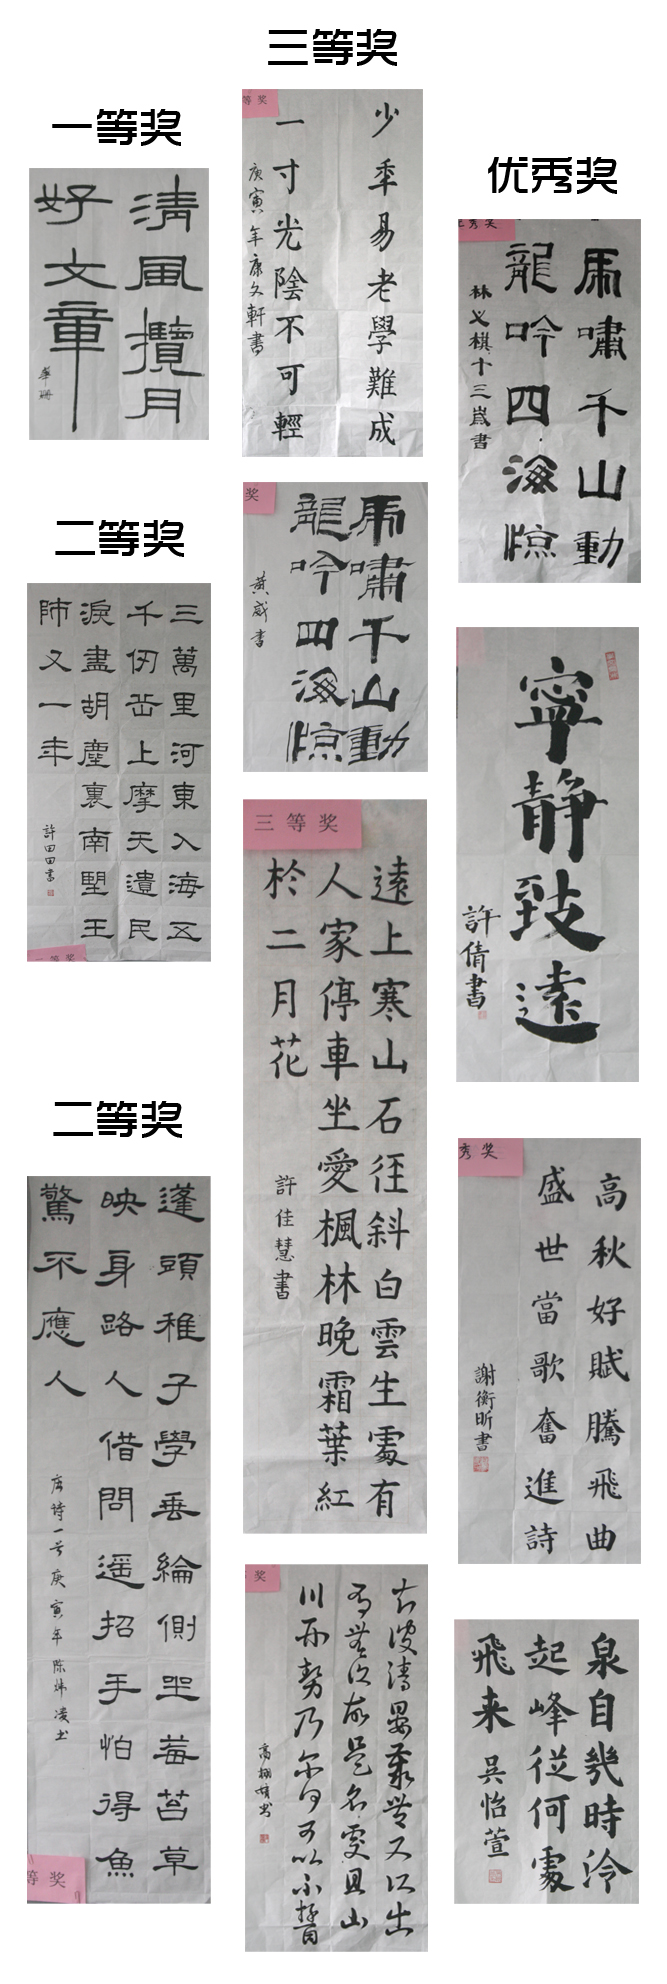 三等奖
一等奖
优秀奖
二等奖
二等奖
清風攬月
好文章
華珊
三萬里河東入海五
千仞岳上摩天遺民
淚盡胡塵裏南望王
師又一年
許田田書
等奖
蓬頭稚子學垂綸側坐莓苔草
映身路人借問遥招手怕得魚
驚不應人
唐诗一首庚寅年陈炜凌书
等奖
等奖
少年易老學難成
一寸光陰不可輕
庚寅年康文軒書
奖
虎嘯千山動
龍吟四海惊
黄威書
三等奖
遠上寒山石徑斜白雲生處有
人家停車坐愛楓林晚霜葉紅
於二月花
許佳慧書
奖
川形勢乃尔何可以不
秀奖
虎嘯千山動
龍吟四海惊
林义棋十三歲書
寧静致遠
許倩書
秀奖
高秋好賦騰飛曲
盛世當歌奮進詩
謝衡昕書
泉自幾時泠
起峰從何處
飛来
吳怡萱